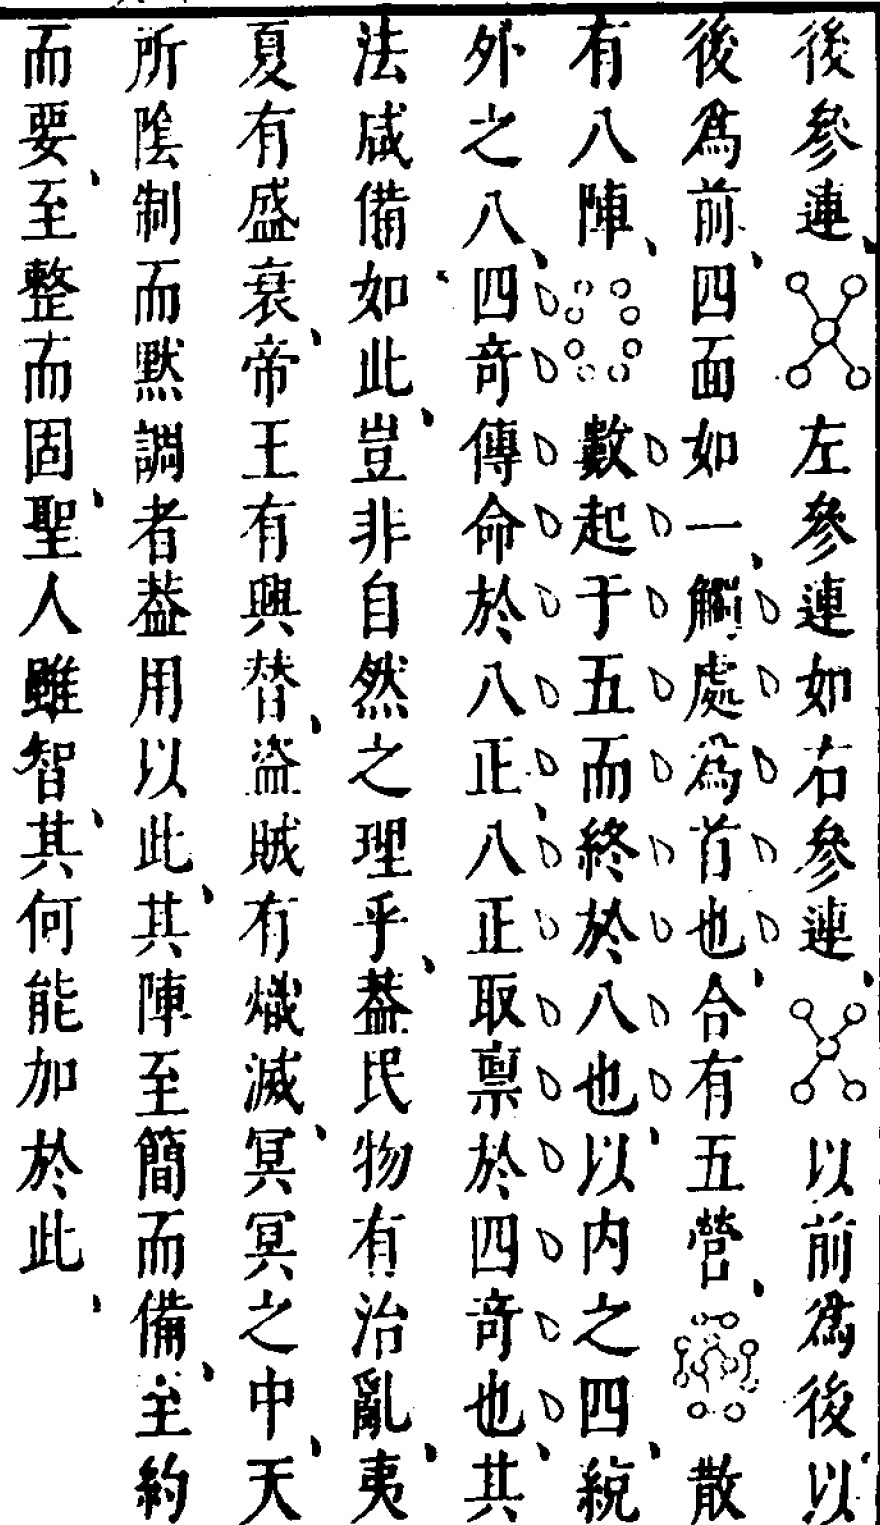 後參連左參連如右參連以前爲後以
後爲前四面如一觸處爲首也合有五營散
有八陣數起于五而終於八也以内之四統
外之八四竒傳命於八正八正取禀於四竒也其
法咸備如此豈非自然之理乎葢民物有治亂夷
夏有盛衰帝王有興替盜賊有熾滅冥冥之中天
所陰制而黙調者葢用以此其陣至簡而備至約
而要至整而固聖人雖智其何能加於此